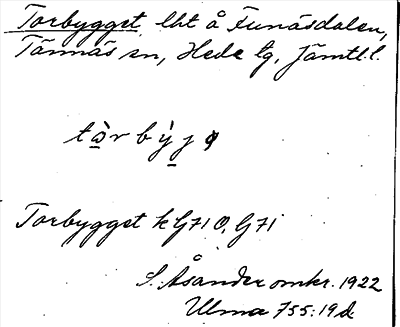 Torbygget, lht å Funäsdalen,
Tännäs sn, Hede tg, Jämtl. l.
tɔ̀rbỳjə
Torbygget k G71 O, G71
S. Åsander omkr. 1922
Ulma 755:19 d.